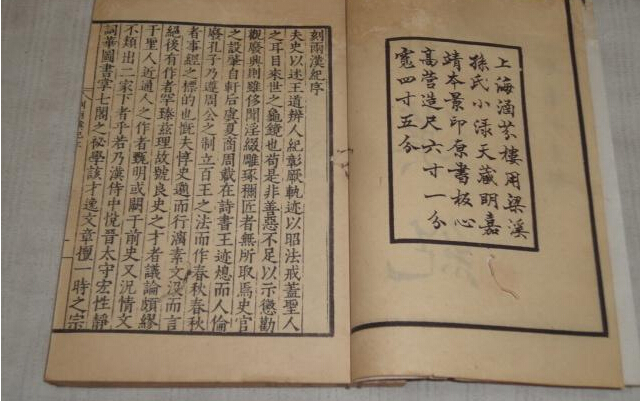 上海涵芬樓用梁溪
孫氏小淥天藏明嘉
靖本景印原書板心
高营造尺六寸一分
寬四寸五分
刻兩漢紀序
夫史以述王道辨人紀彰厥軌迹以昭法戒蓋聖人
之耳目來世之龜鏡也苟是非善惡不足以示懲勸
觀廢興則雖侈聞淫綴雕琢彌匠者無所取焉史官
之設肇自軒后虞夏商周載在詩書王迹熄而人倫
廢孔子乃遵周公之制立百王之法而作春秋春秋
者事經之標的也慨夫惇史邈而行漓素文没而言
絕後有作者罕臻茲理故號良史之才者議論頗繆
于聖人近通人之作者甄明或闕于前史又況情文
不類出二家下者乎若乃漢侍中悅晉太守宏性靜
詞華圖書掌七閣之祕學該才逸文章擅一時之宗